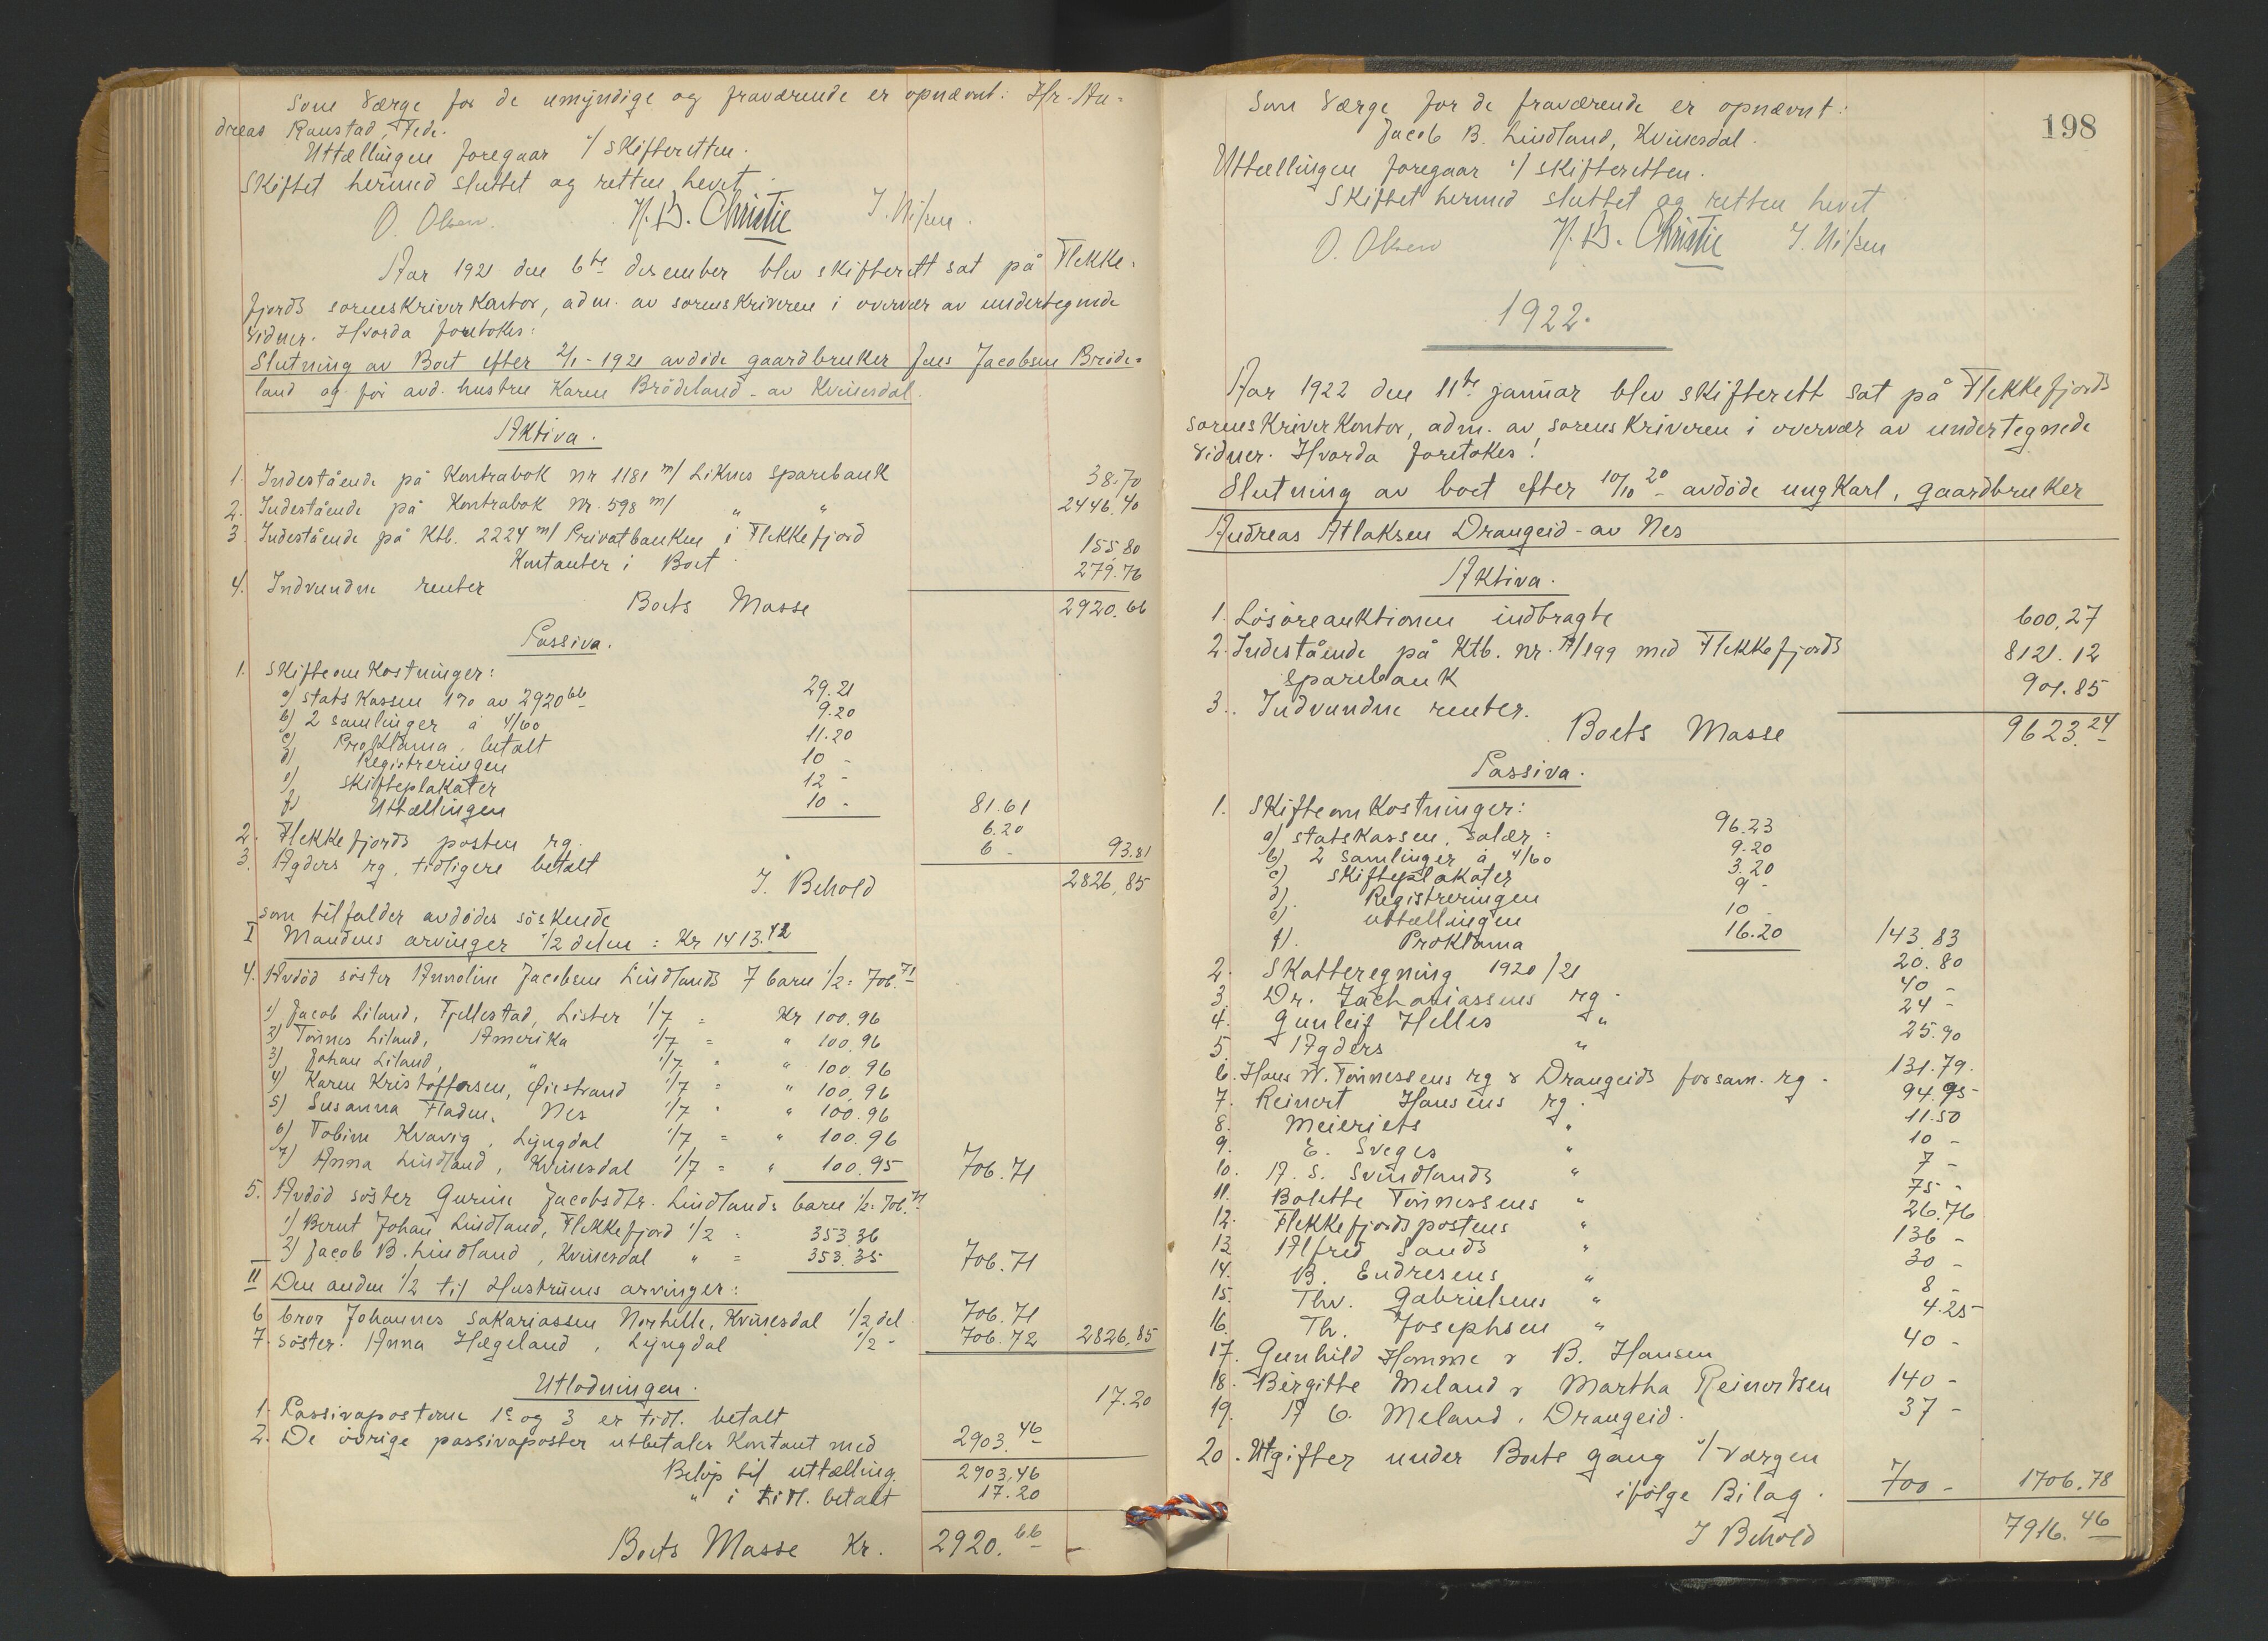 Som værge for de umyndige og fraværende er opnævnt: Hr. An-
dreas Raustad, Fede.
Uttællingen foregaar v/ skifteretten.
Skiftet hermed sluttet og retten hevet.
O. Olsen. N. B. Christie J. Nilsen.
Aar 1921 den 6te desember blev skifterett sat på Flekke-
fjords sorenskriverkontor, adm. av sorenskriveren i overvær av undertegnede
vidner. Hvorda foretokes:
Slutning av Boet efter 2/1-1921 avdöde gaardbruker Jens Jacobsen Bröde-
land og før avd. hustru Karen Brödeland - av Kvinesdal.
Aktiva.
1. Indestående på Kontrabok nr 1181 m/ Liknes sparebank 38.70
2. Indestående på Kontrabok nr. 598 m/ " " 2446.40
3. Indestående på Ktb. 2224 m/ Privatbanken i Flekkefjord 155,80
Kontanter i Boet
4. Indvundne renter 279.76
Boets Masse 2920.66
Passiva.
1. Skifteomkostninger:
a) statskassen 1% av 2920 66 29.21
b) 2 samlinger á 4/60 9.20
c) Proklama, betalt 11.20
d) Registreringen 10 -
e) skifteplakater 12 -
f) Uttællingen 10 - 81.61
2. Flekkefjords posten rg. 6.20
3. Agders rg. tidligere betalt 6 - 93.81
I. Behold 2826,85
som tilfalder avdödes söskende
I Mandens arvinger 1/2 delen : Kr 1413.42
4. Avdöd söster Annoline Jacobsen Lindlands 7 barn 1/2 = 706.71
1) Jacob Liland, Fjellestad, Lister 1/7 = Kr 100.96
2) Tönnes Liland, Amerika 1/7 = " 100.96
3) Johan Liland, " 1/7 " " 100.96
4) Karen Kristoffersen, Öiestrand 1/7 = " 100.96
5) Susanna Fladen, Nes 1/7 " " 100.96
6) Tobine Kvavig, Lyngdal 1/7 = " 100.96
7) Anna Lindland, Kvinesdal 1/7 = " 100.95 706.71
5. Avdöd söster Gurine Jacobsdtr. Lindlands barn 1/2 = 706.71
1) Bernt Johan Lindland, Flekkefjord 1/2 = 353.36
2) Jacob B. Lindland, Kvinesdal " = 353.35 706.71
II Den anden 1/2 til Hustruens arvinger:
6 bror Johannes Sakariassen Norhelle, Kvinesdal 1/2 del. 706.71
7. söster: Anna Hægeland, Lyngdal 1/2 - 706.72 2826.85
Utlodningen.
1. Passivaposterne 1c og 3 er tidl. betalt 17.20
2. De övrige passivaposter utbetales kontant med 2903.46
Belöp til uttælling. 2903,46
" i tidl. betalt 17.20
Boets Masse Kr. 2920.66
198
Som værge for de fraværende er opnævnt:
Jacob B. Lindland, Kvinesdal.
Uttællingen foregaar v/ skifteretten.
Skiftet hermed sluttet og retten hevet
O. Olsen N. B. Christie J. Nilsen
1922.
Aar 1922 den 11te januar blev skifterett sat på Flekkefjords
sorenskriverkontor, adm. av sorenskriveren i overvær av undertegnede
vidner. Hvorda foretokes!
Slutning av boet efter 10/10 20 - avdöde ungkarl, gaardbruker
Andreas Atlaksen Drangeid - av Nes
Aktiva.
1. Lösöreauktionen indbragte 600,27
2. Indestående på Ktb. nr. A/199 med Flekkefjords 8121.12
sparebank
3. Indvundne renter. 901.85
Boets Masse 9623.24
Passiva.
1. Skifteomkostninger:
a) statskassen, salær = 96.23
b) 2 samlinger á 4/60 9.20
c) skifteplakater 3.20
d). Registreringen 9 -
e) uttællingen 10 -
f). Proklama 16.20 143.83
2. Skatteregning 1920/21 20.80
3. Dr. Zachariassens rg. 40 -
4. Gunleif Helles " 24 -
5. Agders " 25.90
6. Hans N. Tönnessens rg & Drangeids forsam. rg. 131.79.
7. Reinert Hansens rg. 94.95
8. Meieriets " 11.50
9. E. Sveges " 10 -
10. A. S. Svindlands " 7 -
11. Bolette Tönnessens " 75 -
12. Flekkefjordspostens " 26.76
13. Alfred Sands " 136 -
14. B. Endresens " 30 -
15. Thv. Gabrielsens " 8 -
16. Th. Josephsen " 4.25
17. Gunhild Homme & B. Hansen 40 -
18. Birgitte Meland & Martha Reinertsen 140 -
19. A G. Meland, Drangeid. 37 -
20. Utgifter under Boets gang v/ værgen
ifölge Bilag. 700 - 1706.78
I Behold 7916.46